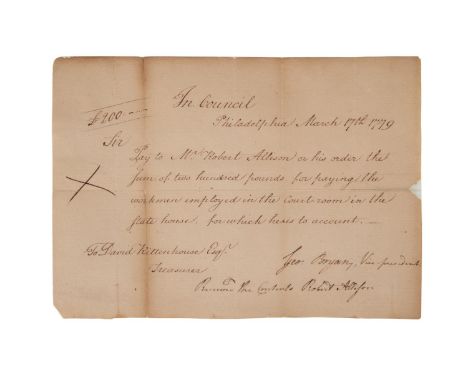 In Council
£200
Philadelphia March 17th 1779
Sir
Pay to Mr. Robert Allison or his order the
sum of two hundred pounds for paying the
workmen employed in the court room in the
state house, for which he is to account.
To David Rittenhouse Esqr.
Treasurer
Geo. Bryan, Vice president
the Contents Robert Allison